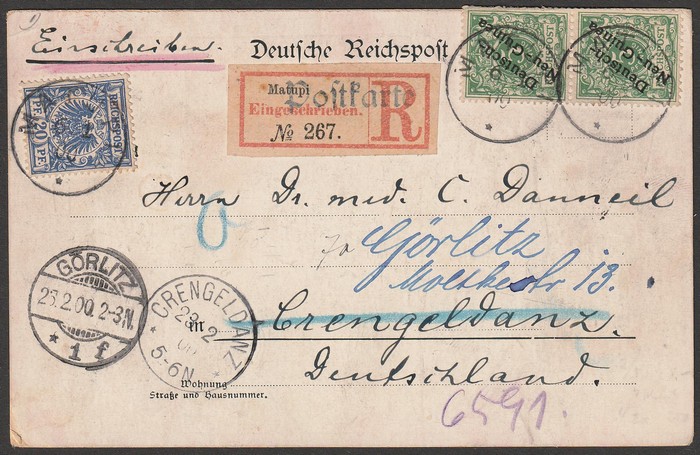 Einschreiben.
Deutsche Reichspost
Postkarte
Matupi
Eingeschrieben.
№ 267.
R
REICHSPOST
20 PF
Deutsch-
Neu-Guinea
Deutsch-
Neu-Guinea
Herrn Dr. med. C. Danneil
Görlitz
Moltkestr 13.
in Crengeldanz.
Deutschland.
GÖRLITZ
25.2.00. 2-3N.
* 1 f
CRENGELDANZ
23 2
5-6N
Wohnung
Straße und Hausnummer.
6591.